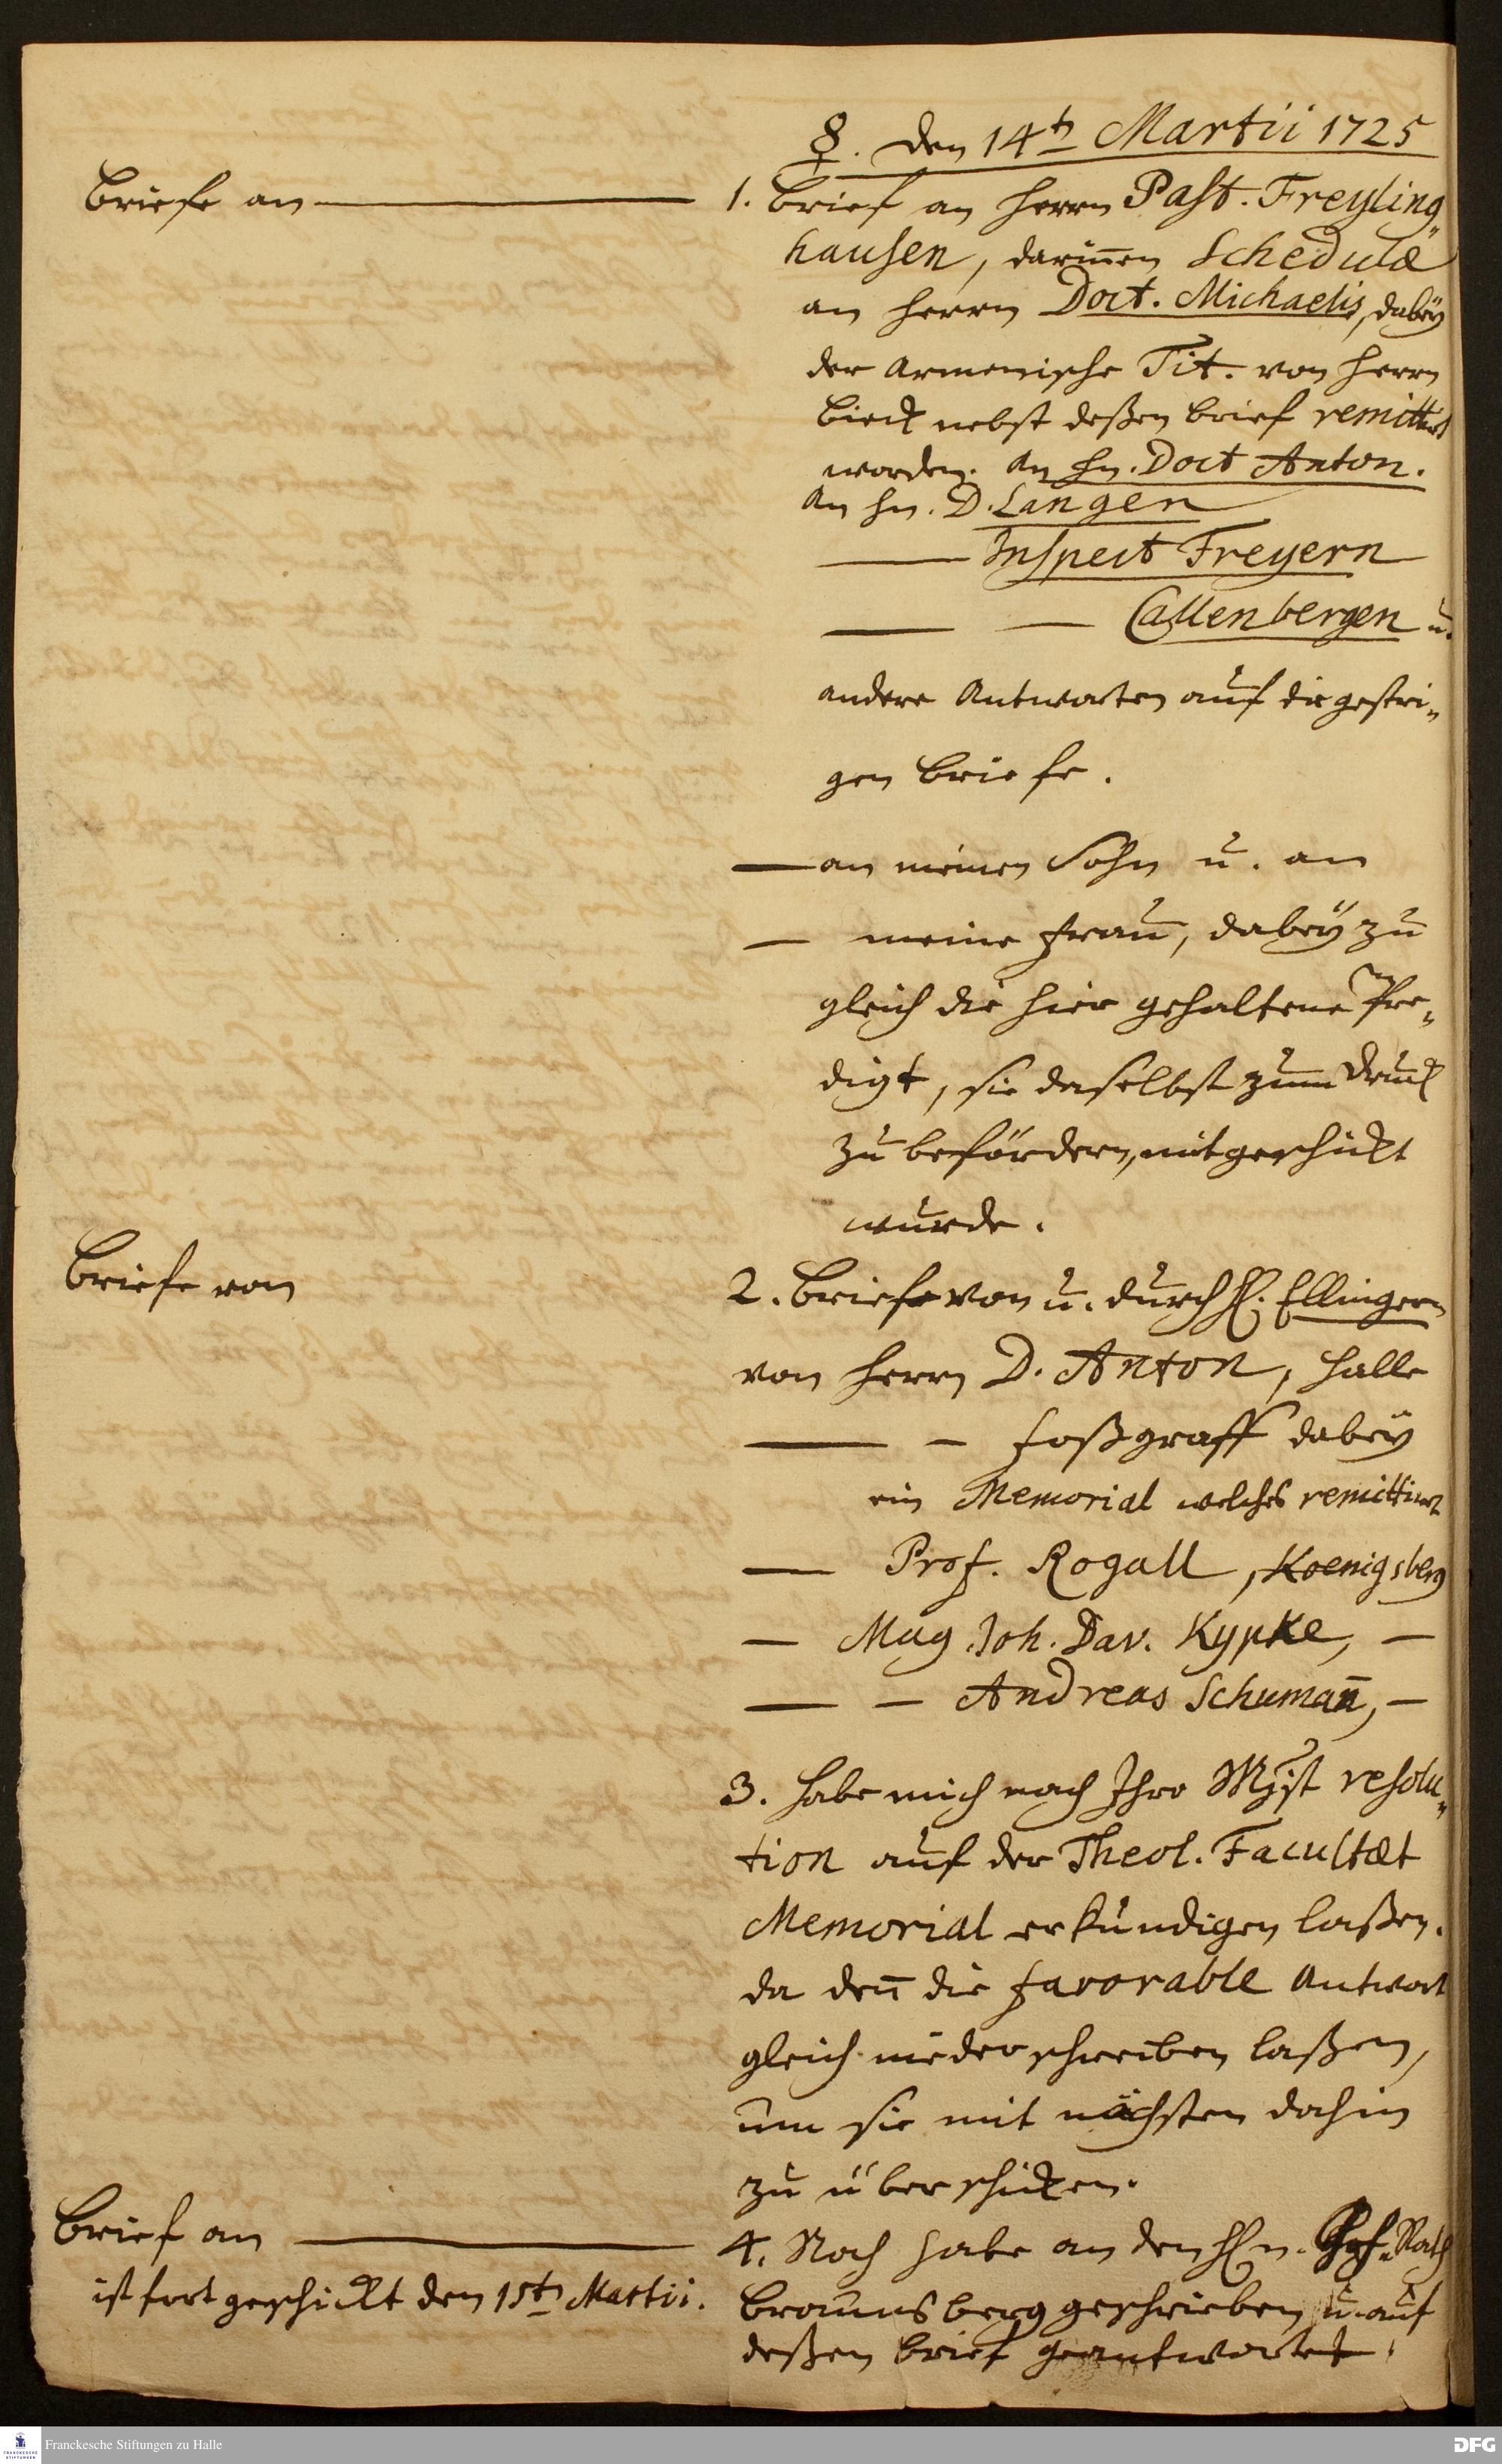 ☿. den 14t Martii 1725
Briefe an
1. Brief an Herrn Past. Freyling„
hausen, darinnen Schedulæ
an Herrn Doct. Michaelis, dabey
der Armenische Tit. von Herrn
Bieck nebst deßen brief remittirt
worden. An Hn. Doct Anton.
An Hn. D. Langen
Inspect Freyern
Callenbergen u.
andere Antworten auf die gestri„
gen Briefe.
an meinen Sohn u. an
meine Frau, dabey zu
gleich die hier gehaltene Pre„
digt, sie daselbst zum Druck
zu befördern, mitgeschickt
wurde.
Briefe von
2. Briefe von u. durch H. Ellingern
von Herrn D. Anton, Halle
— Foßgraff dabey
ein Memorial welches remittirt
— Prof. Rogall, Koenigsberg
— Mag. Joh. Dav. Kypke, —
— — Andreas Schumañ, —
3. Habe mich nach Ihro Mjst resolu„
tion auf der Theol. Facultæt
Memorial erkundigen laßen.
da deñ die favorable Antwort
gleich niederschreiben laßen,
um sie mit nächsten dahin
zu überschicken.
Brief an
4. Noch habe an den Hn. Hof-Rath
ist fort geschickt den 15t Martii.
Braunsberg geschrieben u. auf
deßen brief geantwortet.
Franckesche Stiftungen zu Halle
DFG